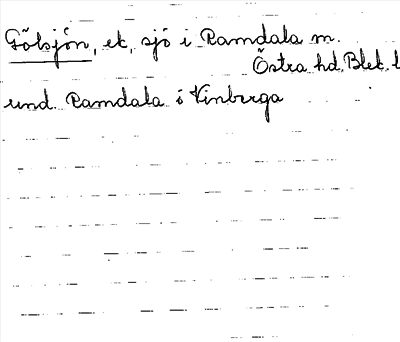 Gölsjön, ek, sjö i Ramdala m.
Östra hd, Blek. l
und Ramdala o Vinberga